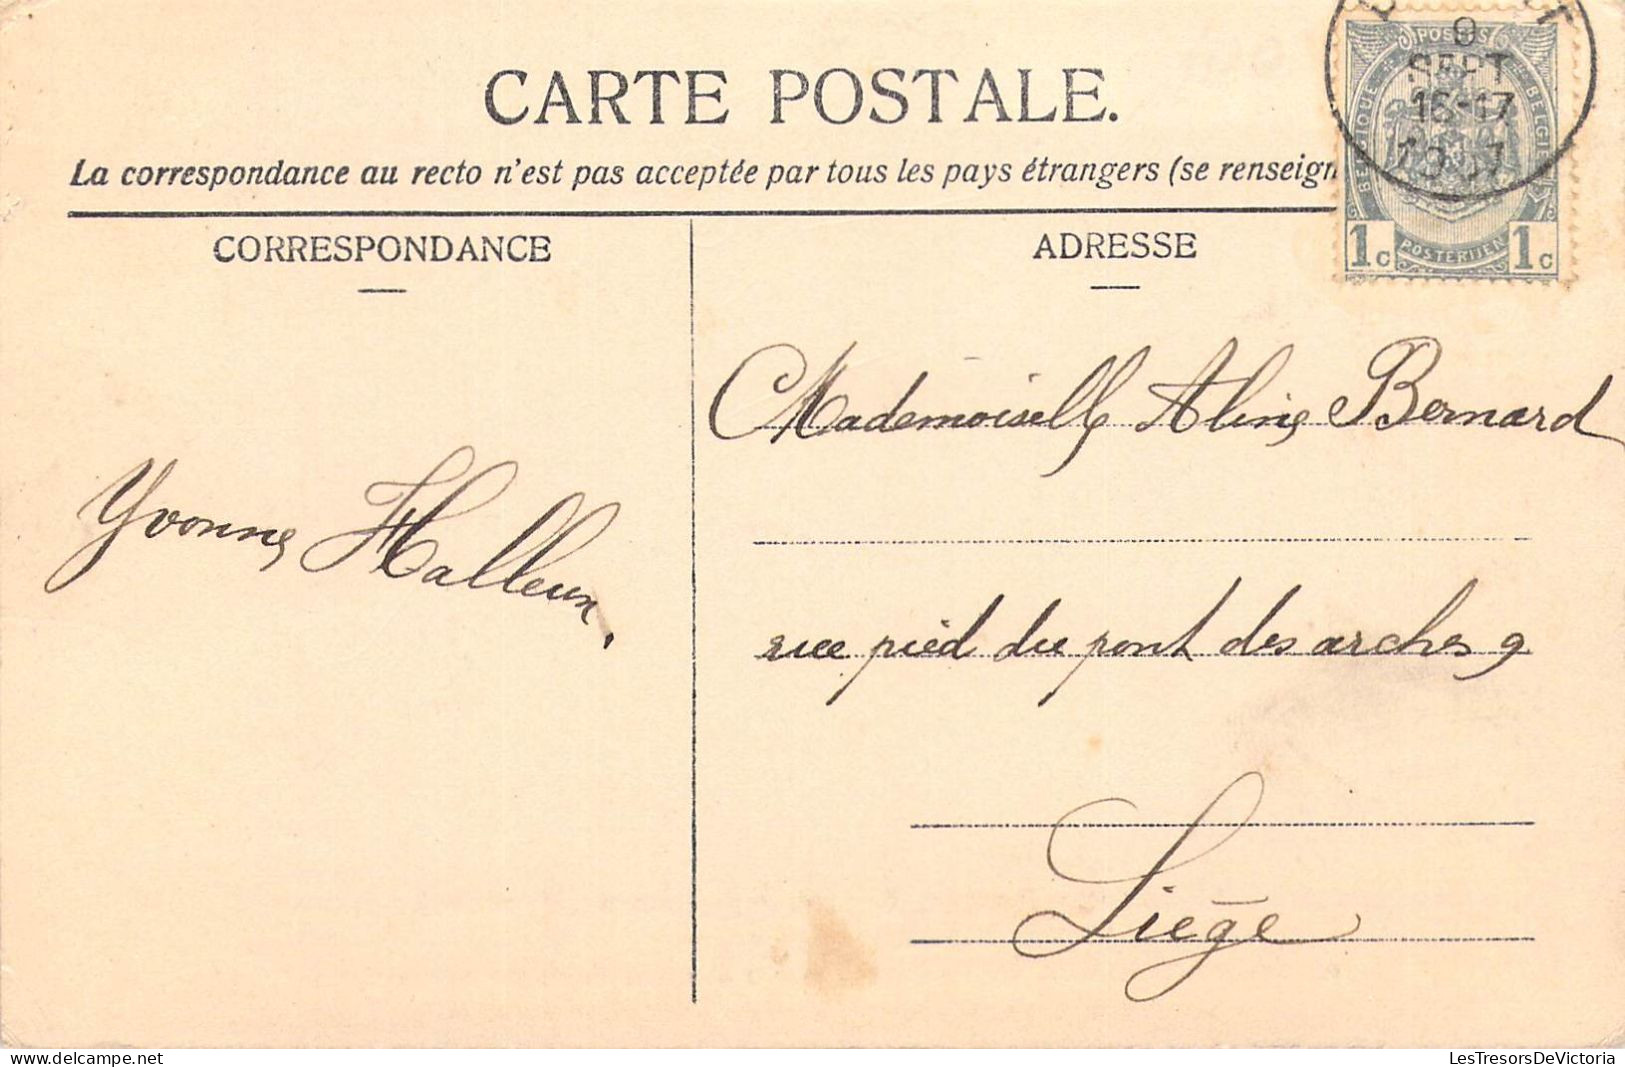 CARTE POSTALE.
La correspondance au recto n'est pas acceptée par tous les pays étrangers (se renseign
CORRESPONDANCE
ADRESSE
POSTES
BELGIQUE
BELGIË
POSTERIJEN
1c 1c
9
SEPT
16-17
1907
Mademoiselle Aline Bernard
Yvonne Halleux.
rue pied du pont des arches 9
Liége
LesTresorsDeVictoria
delcampe.net